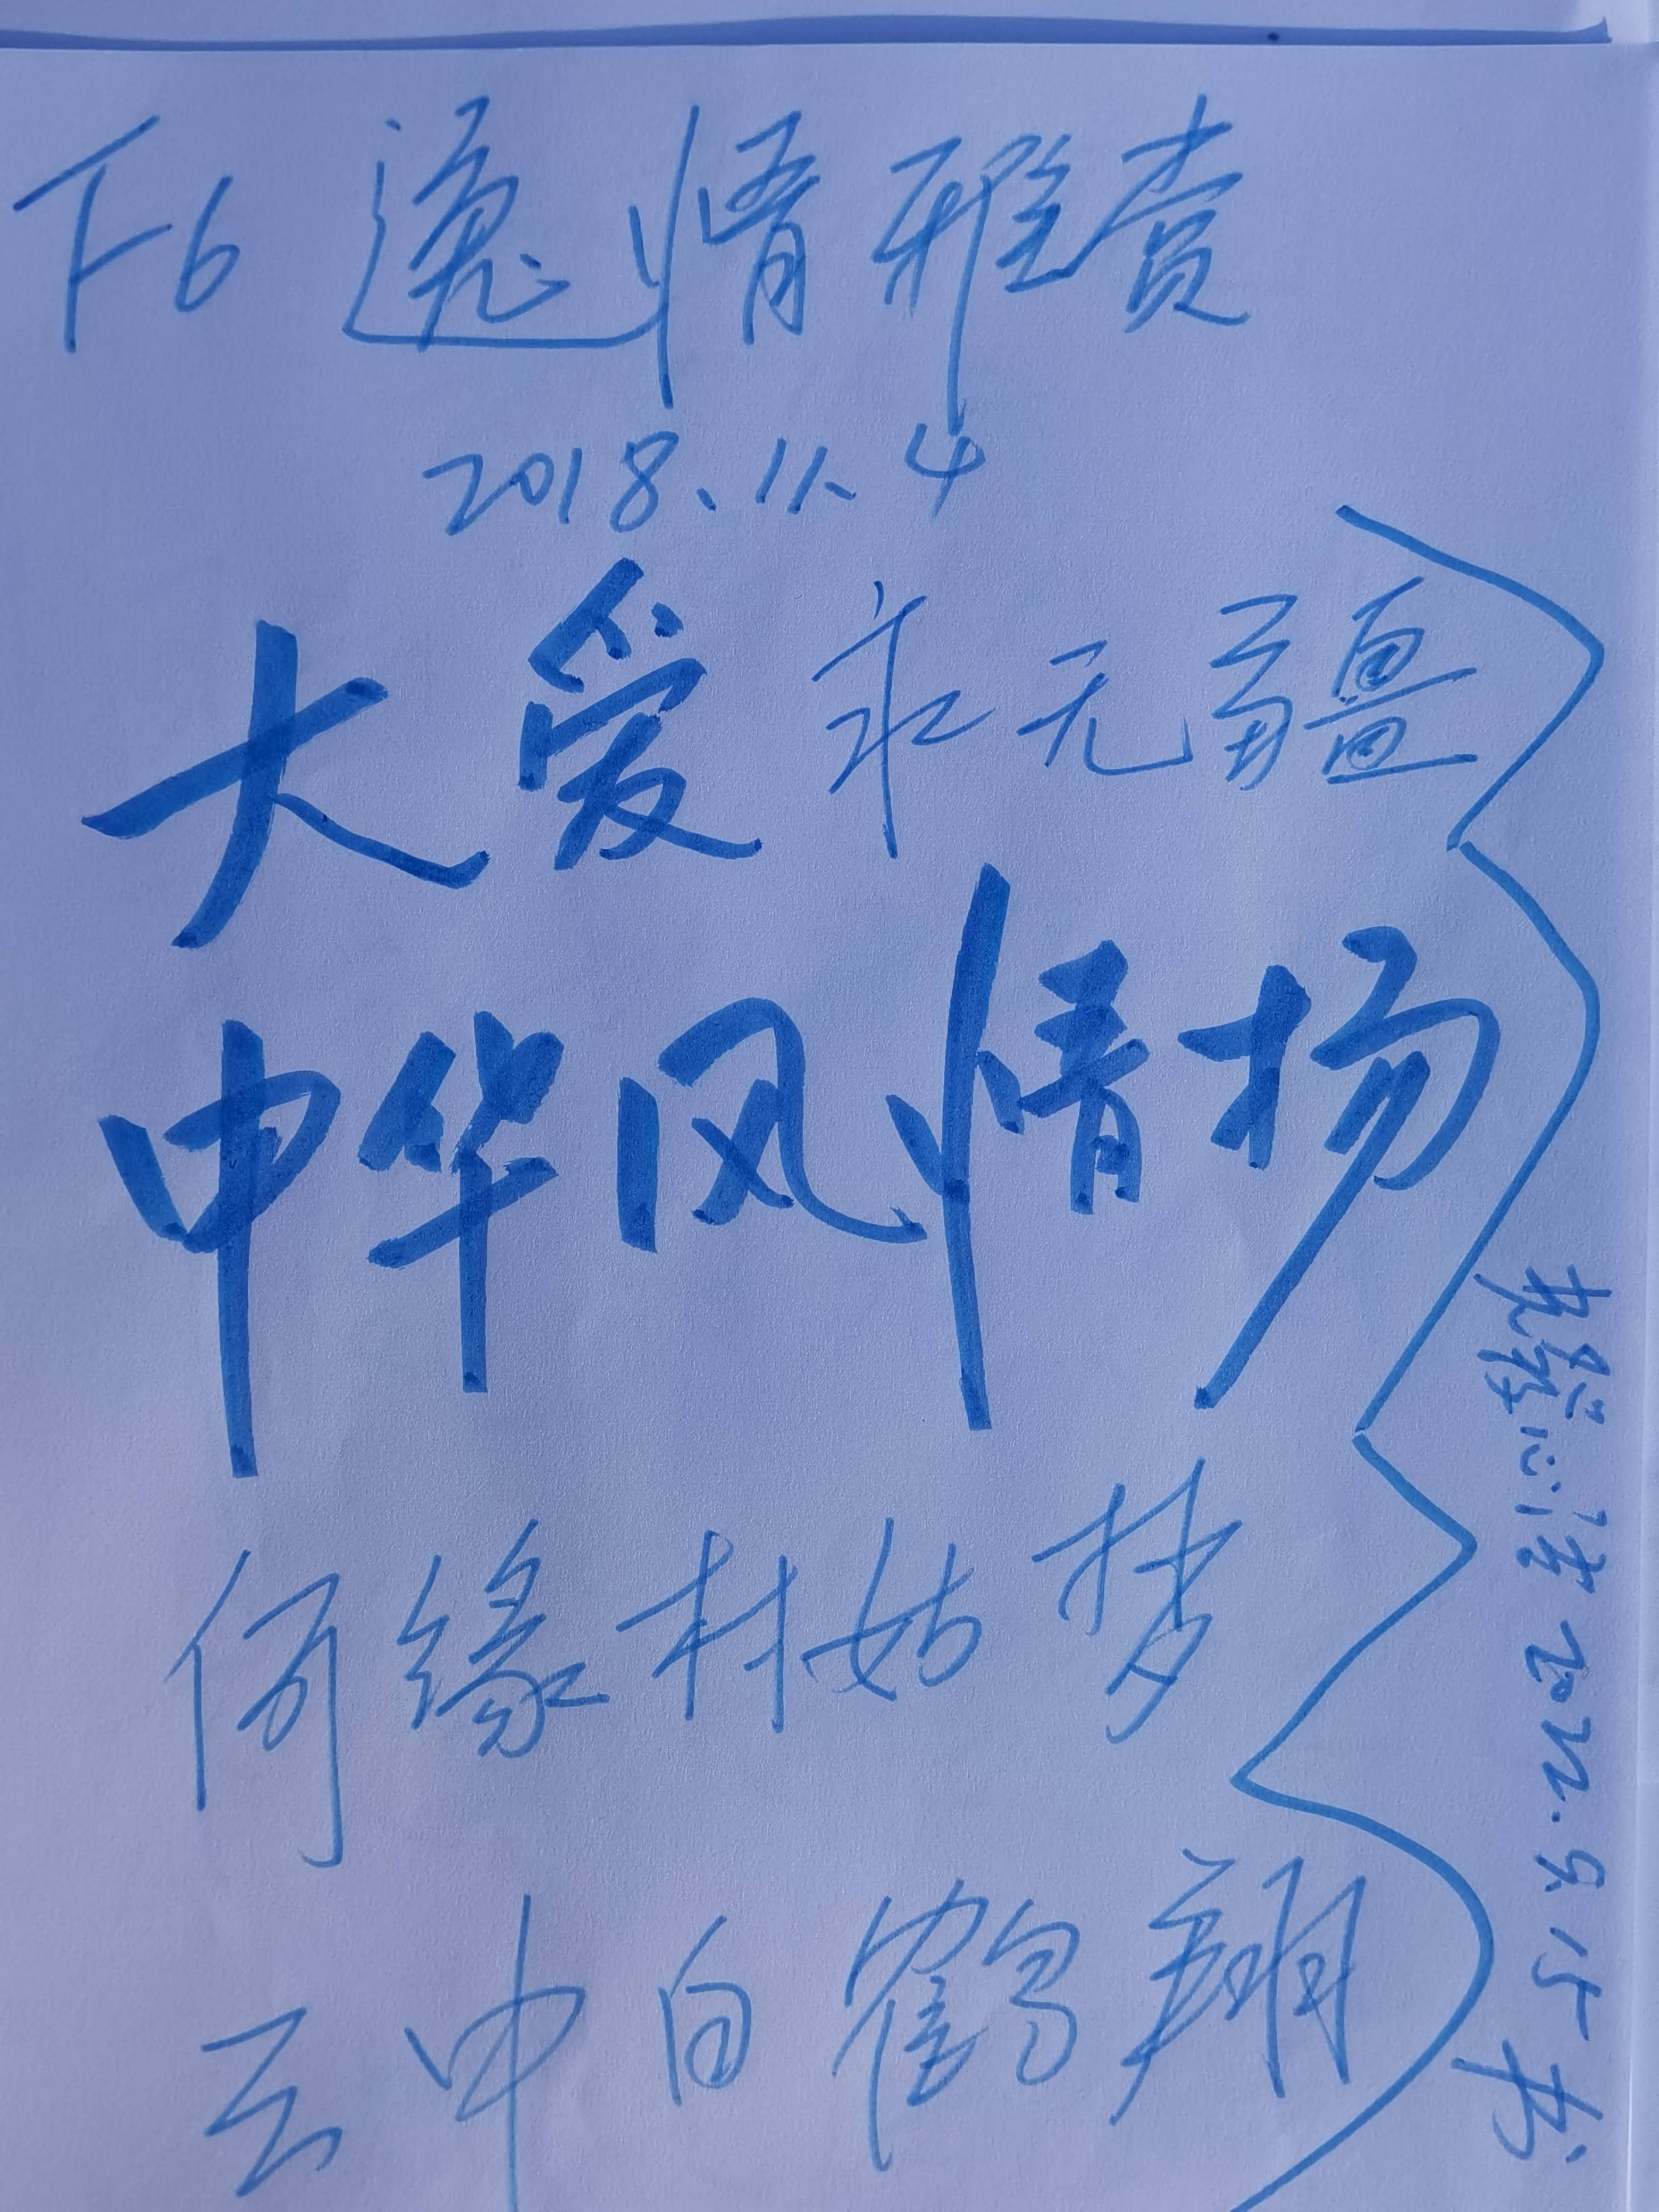 F6 逸情雅赏
2018.11.4
大爱永无疆
中华风情扬
何缘村姑梦
云中白鹤翔
心语 2022.9.15书